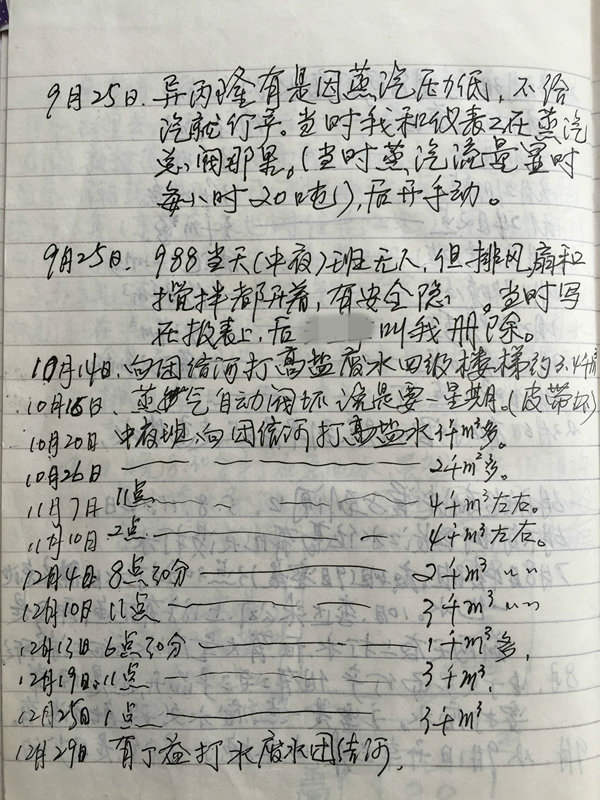 9月25日.异丙隆有是因蒸汽压力低,不给
汽就行车。当时我和仪表工在蒸汽
总阀那里。(当时蒸汽流量显时
每小时20吨),后开手动。
9月25日.988当天(中夜)班无人,但排风扇和
搅拌都开着,有安全隐。当时写
在报表上,后 叫我删除。
10月14日.向团结河打高盐废水四级楼梯约3.4千
10月15日.蒸气自动阀坏说是要一星期。(皮带坏)
10月20日 中夜班.向团结河打高盐水1千m³多。
10月26日 2千m³多。
11月7日 11点 4千m³左右。
11月10日 2点 4千m³左右。
12月4日 8点30分 2千m³ 〃〃
12月10日 11点 3千m³ 〃〃
12月13日 6点30分 1千m³多,
12月19日.11点 3千m³,
12月25日 1点 3千m³
12月29日 打水废水团结河,